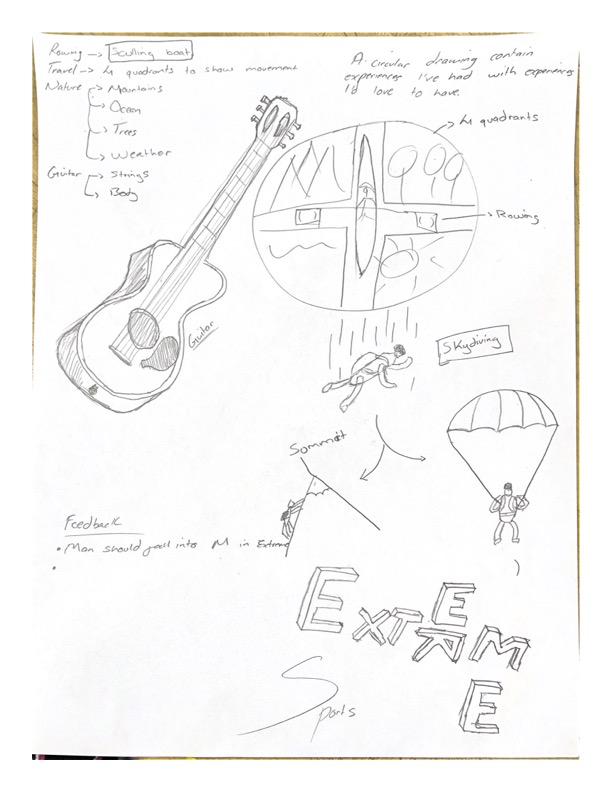 Rowing → Sculling boat
Travel → 4 quadrants to show movement
Nature → Mountains
→ Ocean
→ Trees
→ Weather
Guitar → Strings
→ Body
A circular drawing contain
experiences I've had with experiences
I'd love to have.
→ 4 quadrants
→ Rowing
Guitar
Skydiving
Sommit
Feedback
• Man should fall into M in Extreme
•
EXTREME
Sports